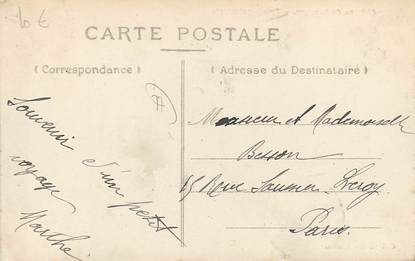 10 €
CARTE POSTALE
( Correspondance )
( Adresse du Destinataire )
Souvenir
d'un petit
voyage
Marthe
Monsieur et Mademoiselle
Besson
15 Rue Saunier Leroy
Paris